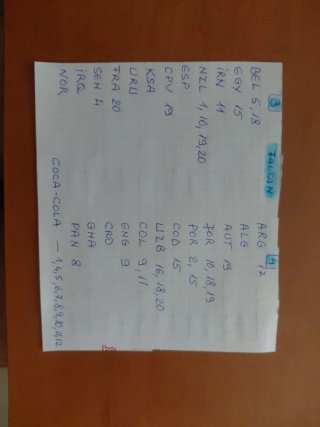 FALTAN
3
BEL 5,18
EGY 15
İRN 11
NZL 1,10,19,20
ESP
CPV 19
KSA
URU
FRA 20
SEN 4
İRQ
NOR
4
ARG 12
ALG
AUT 19
JOR 10,18,19
POR 2,15
COD 15
UZB 16,18,20
COL 9,11
ENG 9
CRO
GHA
PAN 8
COCA-COLA – 1,4,5,6,7,8,9,10,11,12